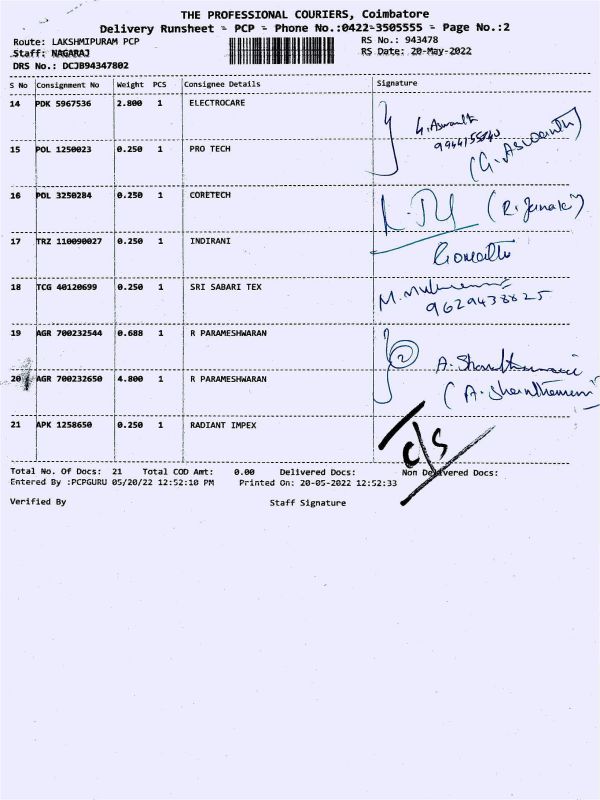 THE PROFESSIONAL COURIERS, Coimbatore
Delivery Runsheet - PCP - Phone No.:0422-3505555 - Page No.:2
Route: LAKSHMIPURAM PCP
RS No.: 943478
Staff: NAGARAJ
RS Date: 20-May-2022
DRS No.: DCJB94347802
S No Consignment No Weight PCS Consignee Details Signature
14 PDK 5967536 2.800 1 ELECTROCARE
G. Aswanth
(G. Aswanth)
15 POL 1250023 0.250 1 PRO TECH
16 POL 3250284 0.250 1 CORETECH
17 TRZ 110090027 0.250 1 INDIRANI
18 TCG 40120699 0.250 1 SRI SABARI TEX
9629438825
19 AGR 700232544 0.688 1 R PARAMESHWARAN
2
20 AGR 700232650 4.800 1 R PARAMESHWARAN
21 APK 1258650 0.250 1 RADIANT IMPEX
c/s
Total No. Of Docs: 21 Total COD Amt: 0.00 Delivered Docs: Non Delivered Docs:
Entered By :PCPGURU 05/20/22 12:52:10 PM Printed On: 20-05-2022 12:52:33
Verified By Staff Signature